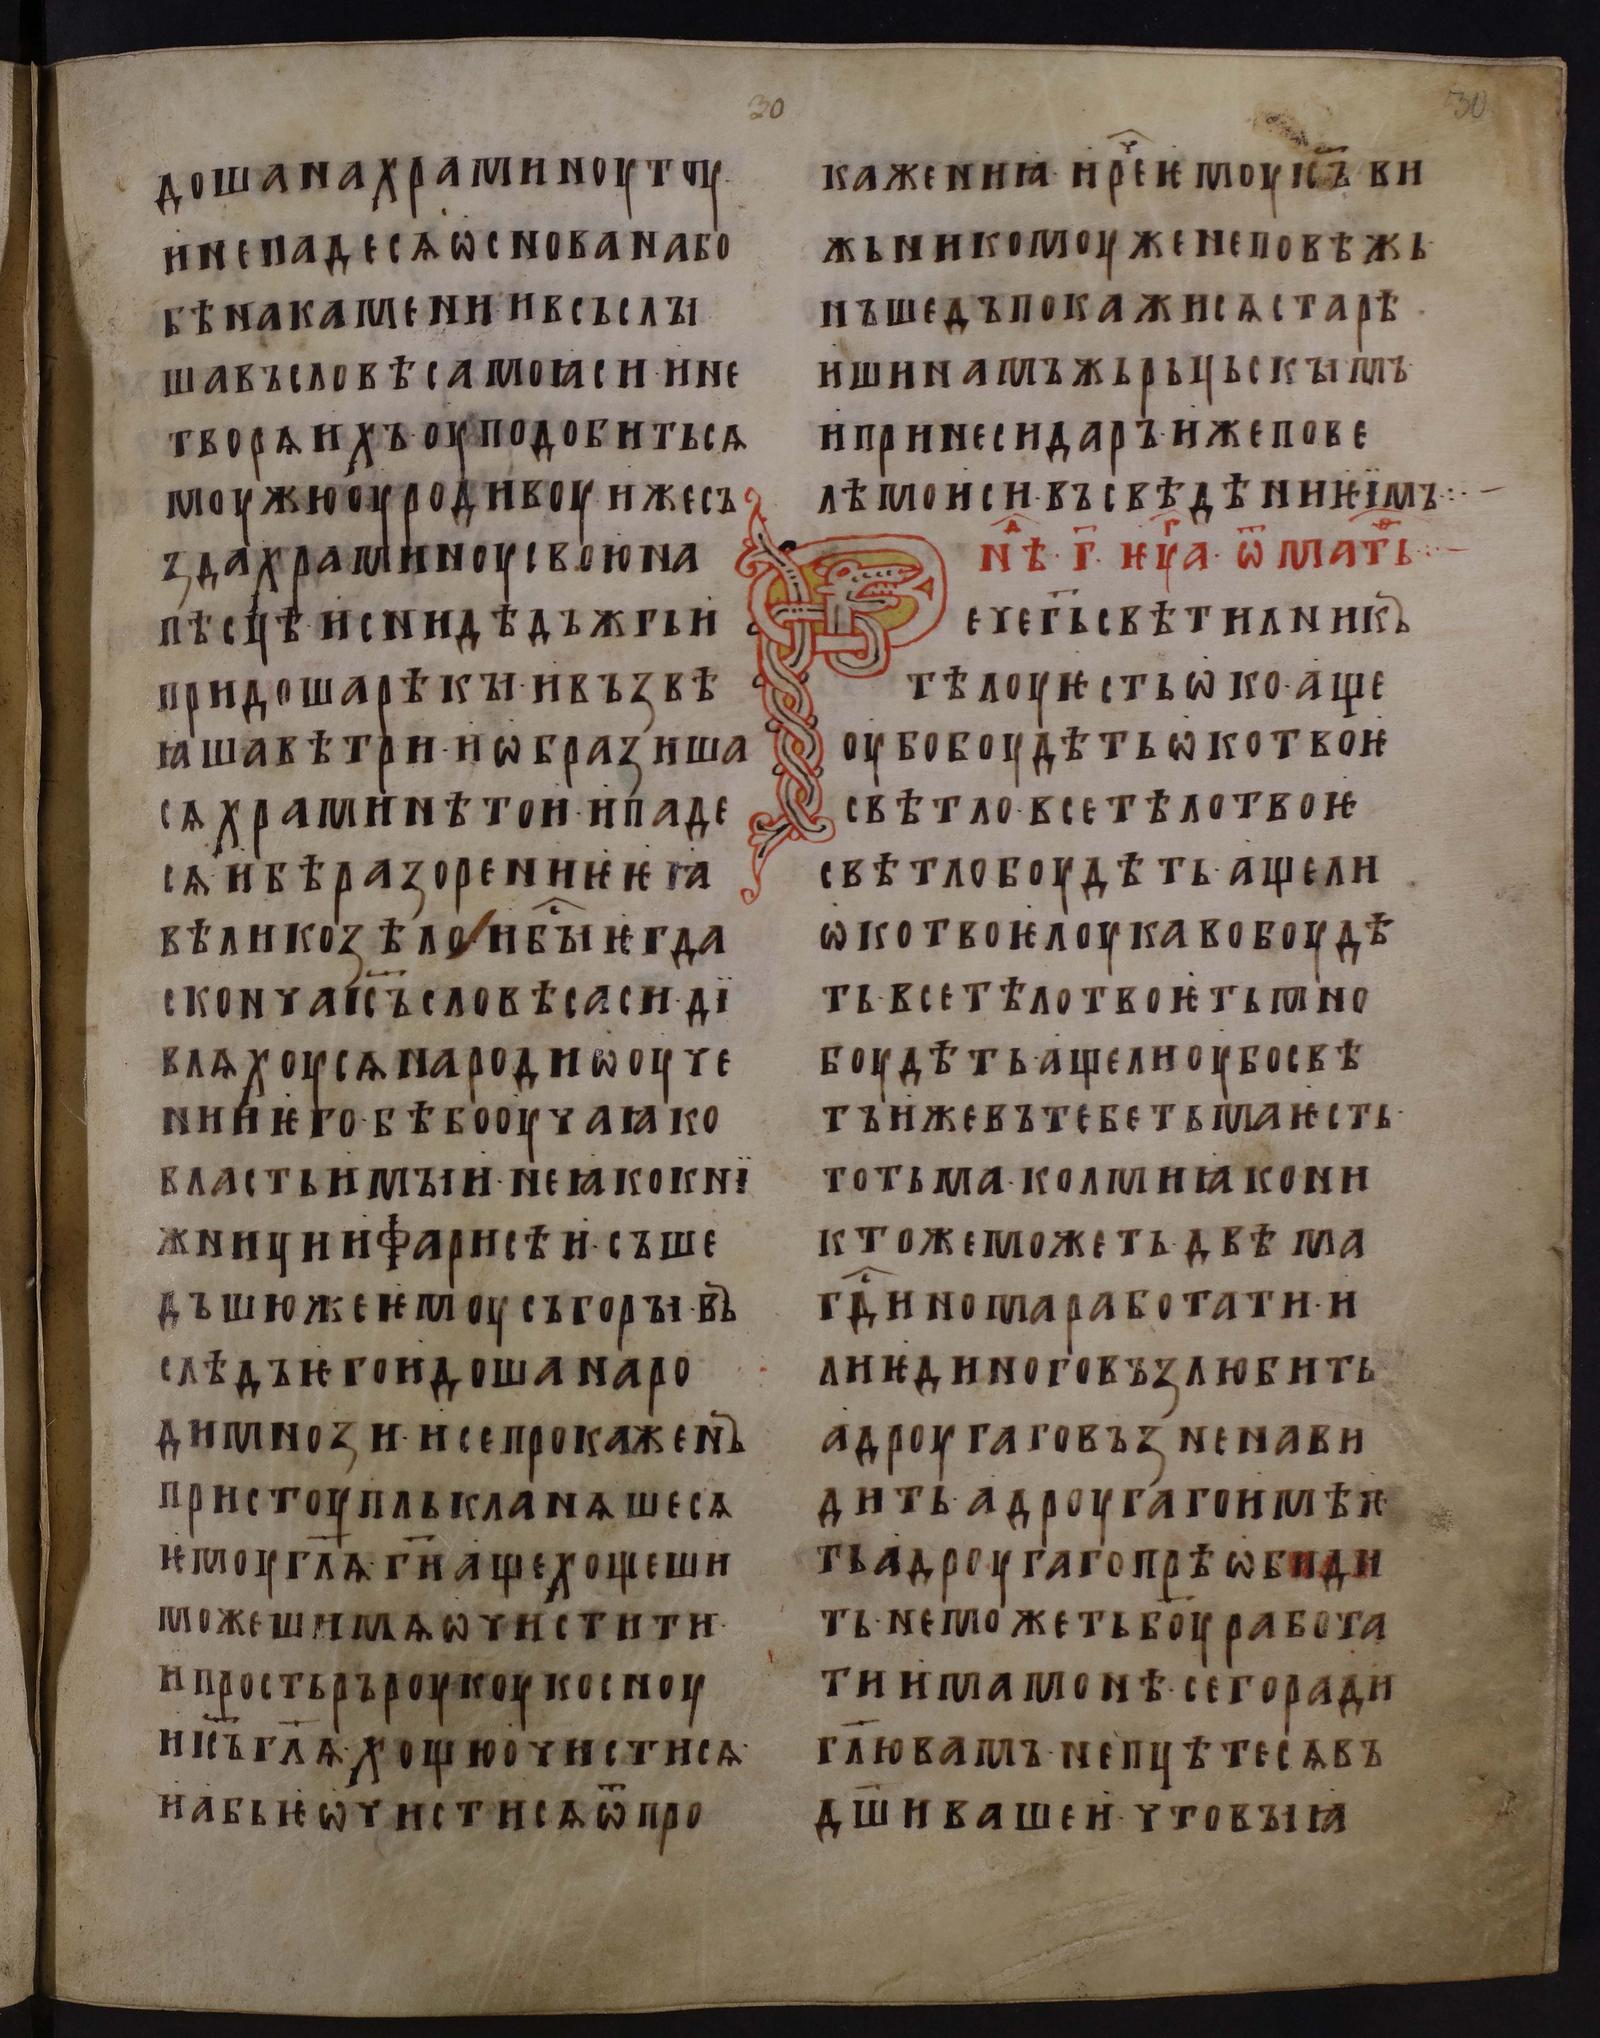 30
30
дошанахраминоутоу·
ннепадесѧѡснованабо
бѣнакаменн·нвсьслы
шавъсловѣсамоꙗсн·нне
творѧнхъ·оуподобнтьсѧ
моужюоуроднвоу·нжесъ
здахрамнноусвоюна
пѣсцѣ·нсннндѣдъжгьн
прндошарѣкы·нвъзвѣ
ꙗшавѣтрн·нѡбразнша
сѧхрамннѣтон·нпаде
сѧ·нбѣразоренннѥѥꙗ
вѣлнкозѣло/нбы̑ⷭѥгда
сконуаі҃съсловѣсасн·дї
влѧхоусѧнароднѡоуче
нннѥго·бѣбооучаꙗко
властьнмын·неꙗкокнї
жннцннфарнсѣн·съше
дъшюжеѥмоусъгоры·въ
слѣдъѥгондошанаро
днмнозн·нсепрокаженъ
прнстоупльклaнѧшесѧ
ѥмоугл҃ѧ·гн҃ащехощешн
можешнмѧѡчнстнтн·
нпростьръроукоукосноу
ні҃съгл҃ѧ·хощюочнстнсѧ·
набьѥѡчнстнсѧѿпро
каженнꙗ·нрⷱ҇еѥмоуі҃съвн
жьннкомоуженеповѣжь·
нъшедъпокажнсѧстарѣ
ншннамъжьрьцьскымъ·
нпрннесндаръ·нжепове
лѣмонсн·въсвѣдѣннѥїмъ:·–
нⷣѣ·г҃·ѥуⷢа·ѿматⷴь:·–
Речег҃ьсвѣтнлннкъ
тѣлоуѥстьѡко·аще
оубобоудѣтьѡкотвоѥ
свѣтло·всетѣлотвоѥ
свѣтлобоудѣть·ащелн
ѡкотвоѥлоукавобоудѣ
ть·всетѣлотвоѥтьмно
боудѣть·ащелноубосвѣ
тънжевътебетьмаѥсть·
тотьма·колмнꙗконн
ктожеможеть·двѣма
гⷭ҇днномаработатн·н
лнѥдноговъзлюбнть
адроугаговъзненавн
днть·адроугагонмѣѥ
тьадроугагопрѣѡбндн
ть·неможетьбо҃уработа
тннмамонѣ·сегорадн
гл҃ювамъ·непцѣтесѧвъ
дш҃нвашен·чтовыꙗ